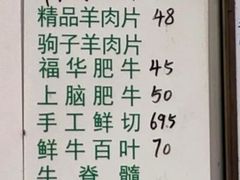 精品羊肉片 48
驹子羊肉片
福华肥牛 45
上脑肥牛 50
手工鲜切 69.5
鲜牛百叶 70
牛脊髓